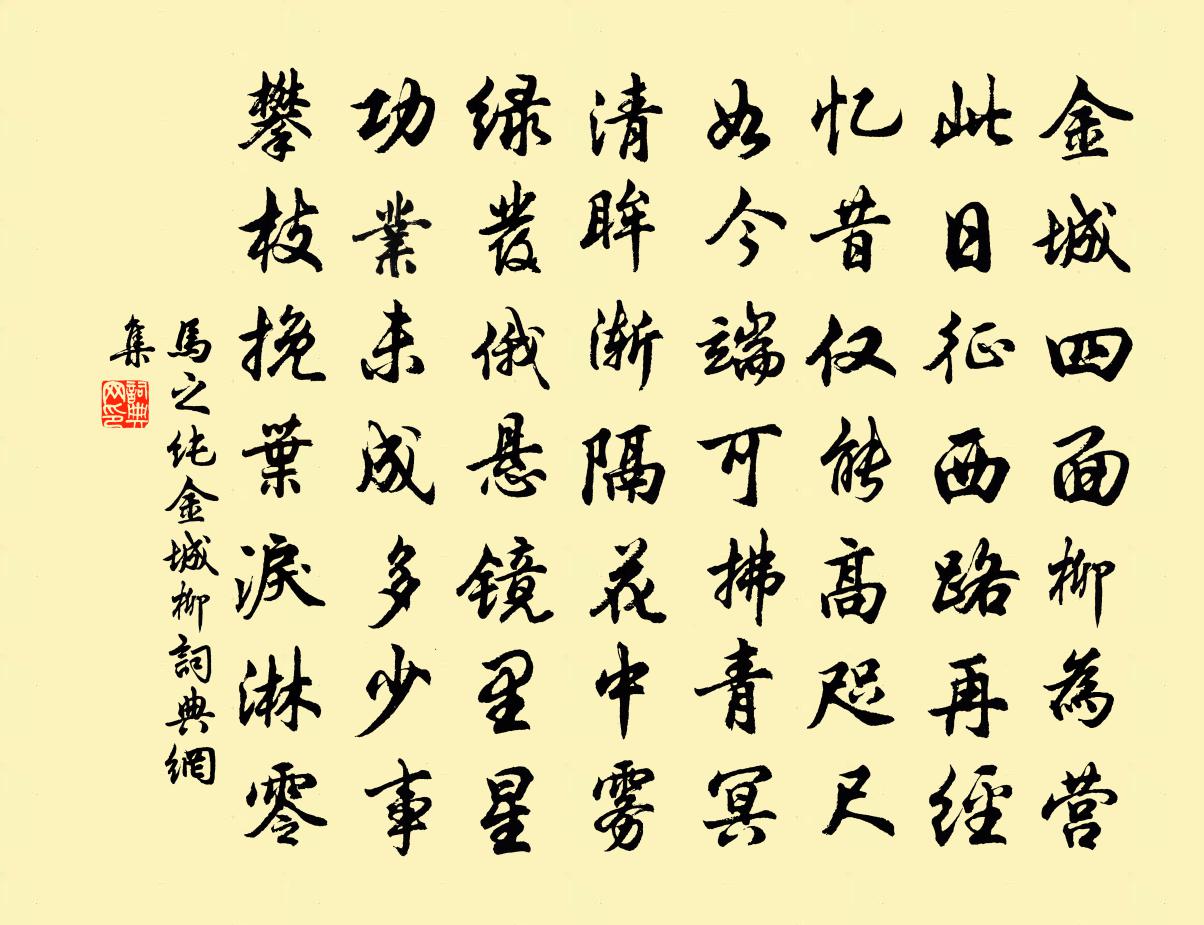 金城四面柳為营
此日征西路再經
忆昔仅能高咫尺
如今端可拂青冥
清眸渐隔花中雾
绿发俄悬镜里星
功業未成多少事
攀枝挽葉淚淋零
馬之纯金城柳詞典網
集
詞典网印